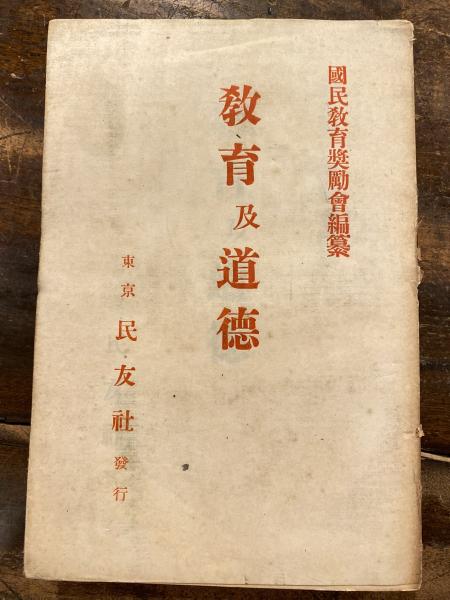 國民敎育奬勵會編纂
敎育及道德
東京民友社發行